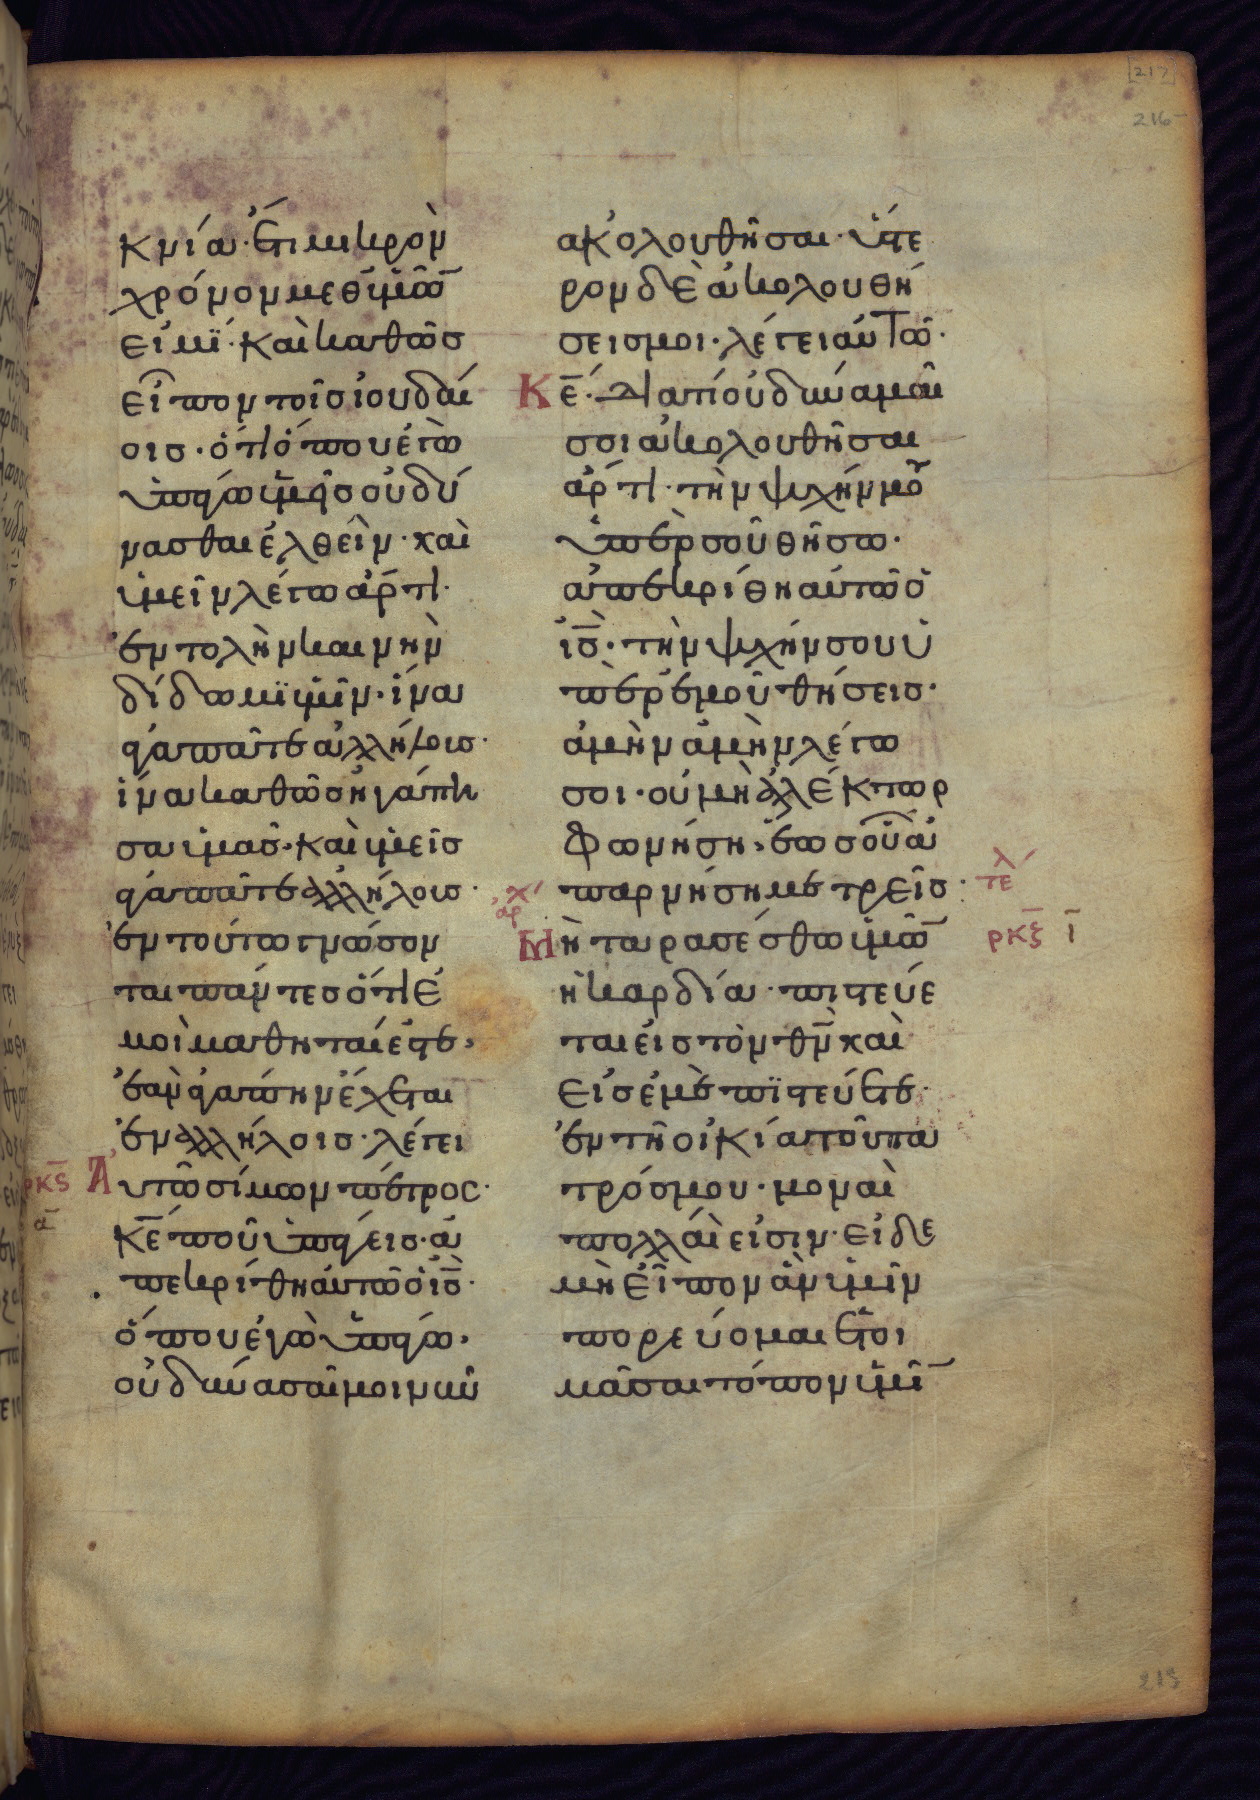 [217]
216
κνία· ἔτι μικρὸν
χρόνον μεθ' ὑμῶν
εἰμϊ· καὶ καθὼσ
εἶπον τοῖσ ἰουδαί
οισ· ὅτι ὅπου ἐγὼ
ὑπάγω ὑμεῖσ οὐ δύ
νασθαι ἐλθεῖν· καὶ
ὑμεῖν λέγω ἄρτι·
ἐντολὴν καινὴν
δίδωμϊ ὑμῖν· ἵνα
ἀγαπᾶτε ἀλλήλοισ·
ἵνα καθὼσ ἠγάπη
σα ὑμᾶσ· καὶ ὑμεῖσ
ἀγαπᾶτε ἀλλήλοισ·
ἐν τούτω γνώσον
ται πάντεσ ὅτι ἐ
μοὶ μαθηταί ἐστε,
ἐὰν ἀγάπην ἔχεται
ἐν ἀλλήλοισ· λέγει
ρκς̅ Α
υτῶ σίμων πέτρος·
α̅
κ̅ε̅ ποῦ ὑπάγεισ· ἀ
πεκρίθη αὐτῶ ὁ ι̅σ̅·
ὅπου ἐγὼ ὑπάγω·
οὐ δύνασαί μοι νῦν
ακολουθῆσαι· ὕστε
ρον δὲ ἀκολουθή
σεισ μοι· λέγει αὐτῶ·
Κ̅ε̅· διατί οὐ δύναμαί
σοι ἀκολουθῆσαι
ἄρτι· τὴν ψυχήν μου
ὑπὲρ σοῦ θήσω·
ἀπεκρίθη αὐτῶ ὁ
ι̅σ̅· τὴν ψυχήν σου ὑ
πὲρ ἐμοῦ θήσεισ·
ἀμὴν ἀμὴν λέγω
σοι· οὐ μὴ ἀλέκτωρ
φωνήση· ἕωσ οὗ ἀ
παρνήση με τρεῖσ·
τελ
αρχ
Μὴ ταρασέσθω ὑμῶν
ρκζ̅ ι̅
ἡ καρδία· πιστεύε
ται εἰσ τὸν θ̅ν̅ καὶ
εἰσ ἐμὲ πϊστεύετε·
ἐν τῆ οἰκία τοῦ πα
τρόσ μου· μοναὶ
πολλαί εἰσιν· εἰ δε
μὴ εἶπον ἂν ὑμῖν
πορεύομαι ἑτοι
μᾶσαι τόπον ὑμῖ
215